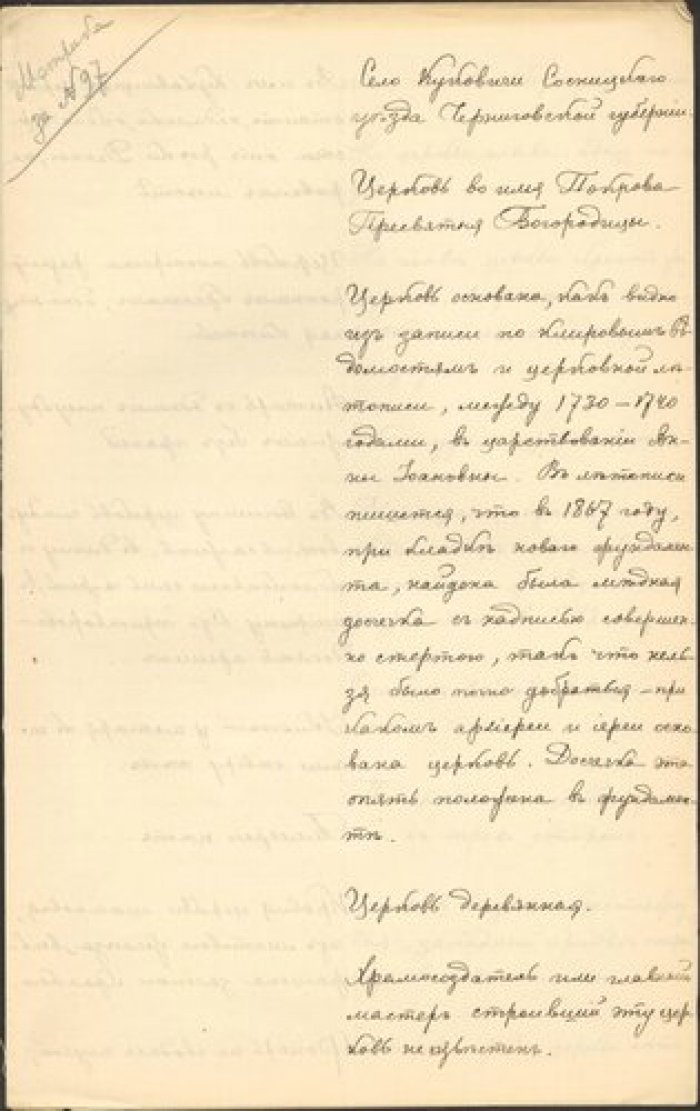 Метрика
за № 97
Село Куковичи Сосницкаго
уѣзда Черниговской губерніи.
Церковь во имя Покрова
Пресвятыя Богородицы.
Церковь основана, какъ видно
изъ записи по клировымъ вѣ-
домостямъ и церковной лѣ-
тописи, между 1730–1740
годами, въ царствованіи Ан-
ны Іоановны. Въ лѣтописи
пишется, что въ 1867 году,
при кладкѣ новаго фундамен-
та, найдена была мѣдная
досечка съ надписью совершен-
но стертою, такъ что нель-
зя было ясно добраться – при
какомъ архіереи и іереи осно-
вана церковь. Досечка эта
опять положена въ фундамен-
тѣ.
Церковь деревянная.
Храмосоздатель или главный
мастеръ строившій эту цер
ковь неизвѣстенъ.